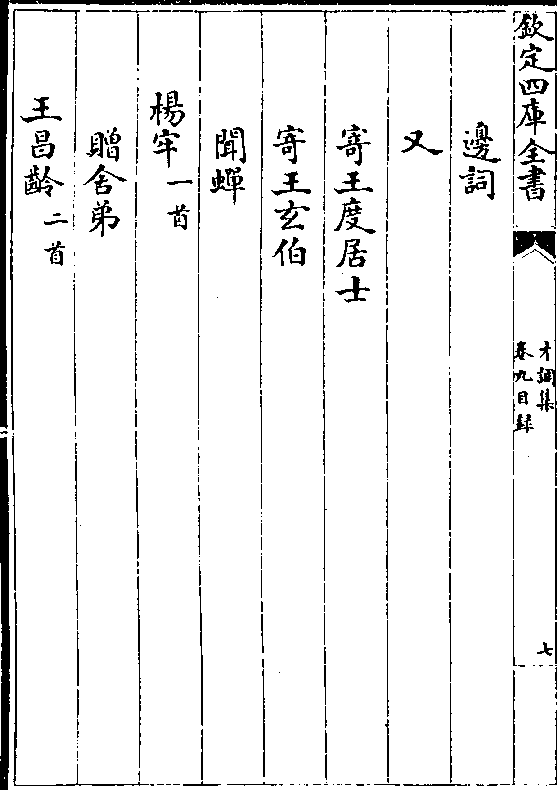 欽定四庫全書
才調集
卷九目録
七
邊詞
又
寄王度居士
寄王玄伯
聞蟬
楊牢一首
贈舍弟
王昌齡二首